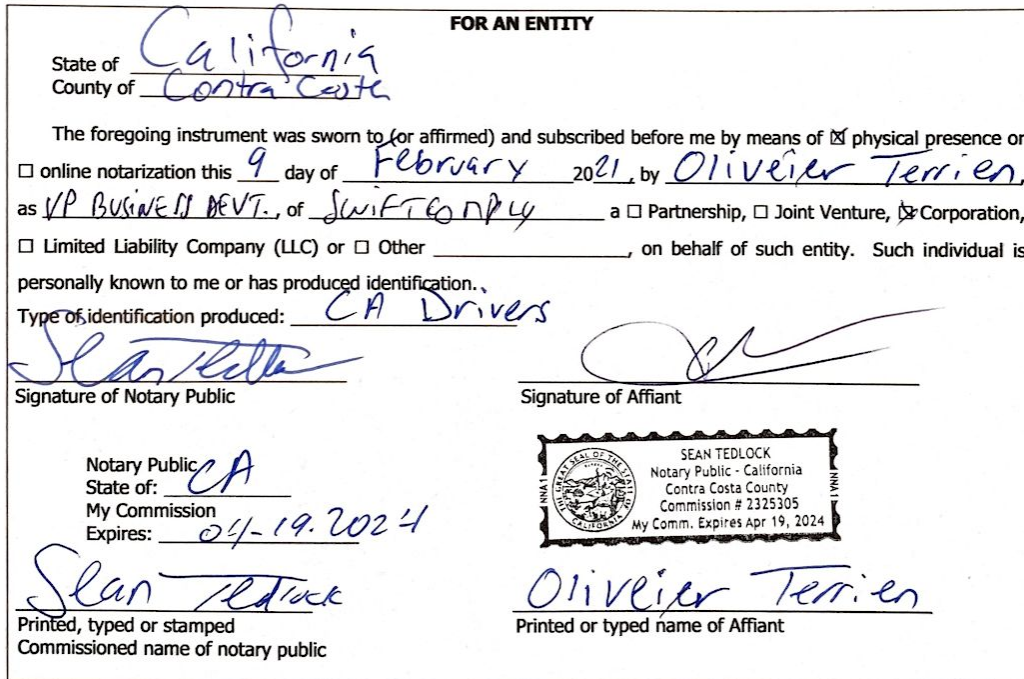 FOR AN ENTITY
State of California
County of Contra Costa
The foregoing instrument was sworn to (or affirmed) and subscribed before me by means of ☒ physical presence or
☐ online notarization this 9 day of February 2021, by Oliveier Terrien,
as VP BUSINESS DEVT., of SWIFTCOMPLY a ☐ Partnership, ☐ Joint Venture, ☒ Corporation,
☐ Limited Liability Company (LLC) or ☐ Other ____________, on behalf of such entity. Such individual is
personally known to me or has produced identification.
Type of identification produced: CA Drivers
Sean Tedlock
Signature of Notary Public
Signature of Affiant
Notary Public
State of: CA
My Commission
Expires: 04-19.2024
NNA 1
THE GREAT SEAL OF THE STATE OF CALIFORNIA
SEAN TEDLOCK
Notary Public - California
Contra Costa County
Commission # 2325305
My Comm. Expires Apr 19, 2024
NNA 1
Sean Tedlock
Printed, typed or stamped
Commissioned name of notary public
Oliveier Terrien
Printed or typed name of Affiant